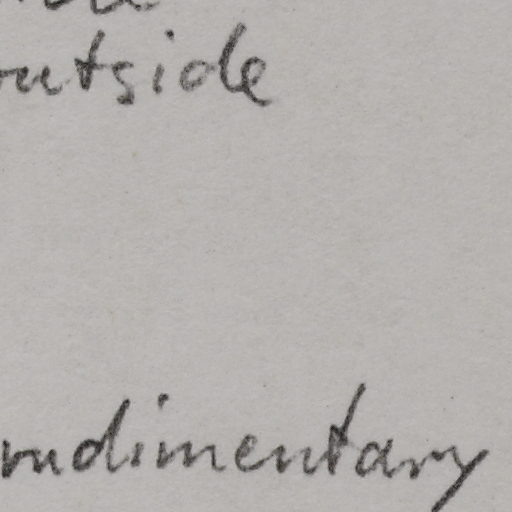 outside
rudimentary